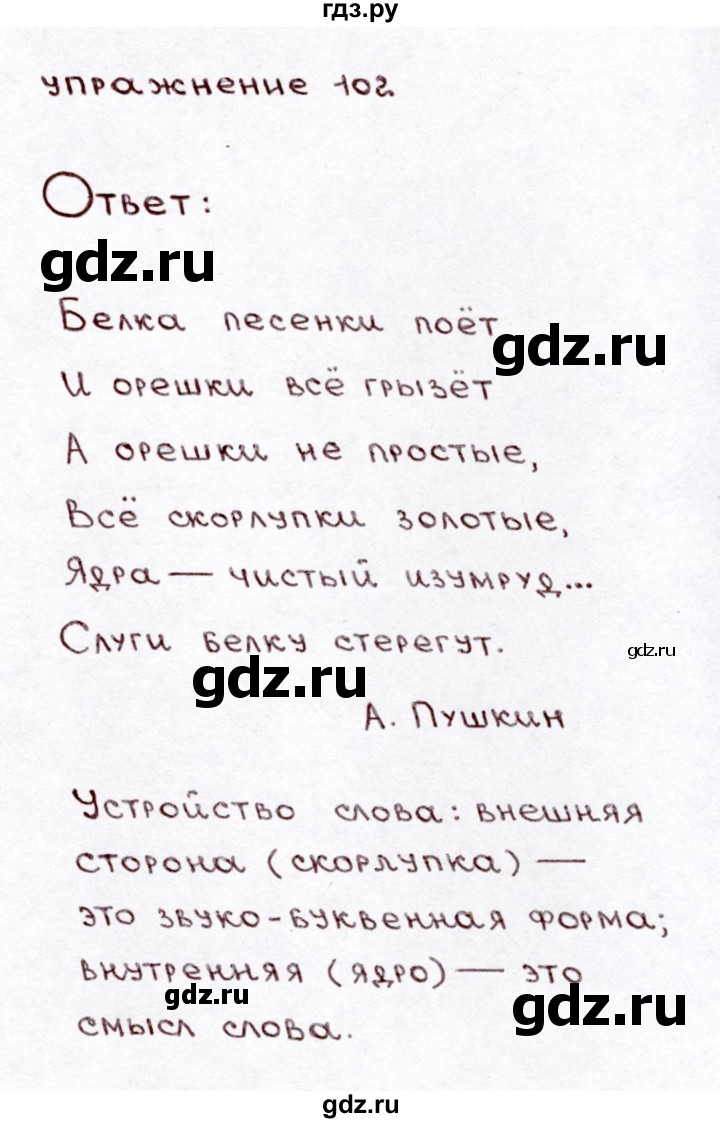 гдз.ру
упражнение 102.
Ответ:
gdz.ru
Белка песенки поёт
gdz.ru
И орешки всё грызёт
А орешки не простые,
Всё скорлупки золотые,
Ядра — чистый изумруд...
Слуги белку стерегут.
gdz.ru
gdz.ru
А. Пушкин
Устройство слова: внешняя
сторона (скорлупка) —
это звуко-буквенная форма;
внутренняя (ядро) — это
gdz.ru
смысл слова.
gdz.ru
gdz.ru